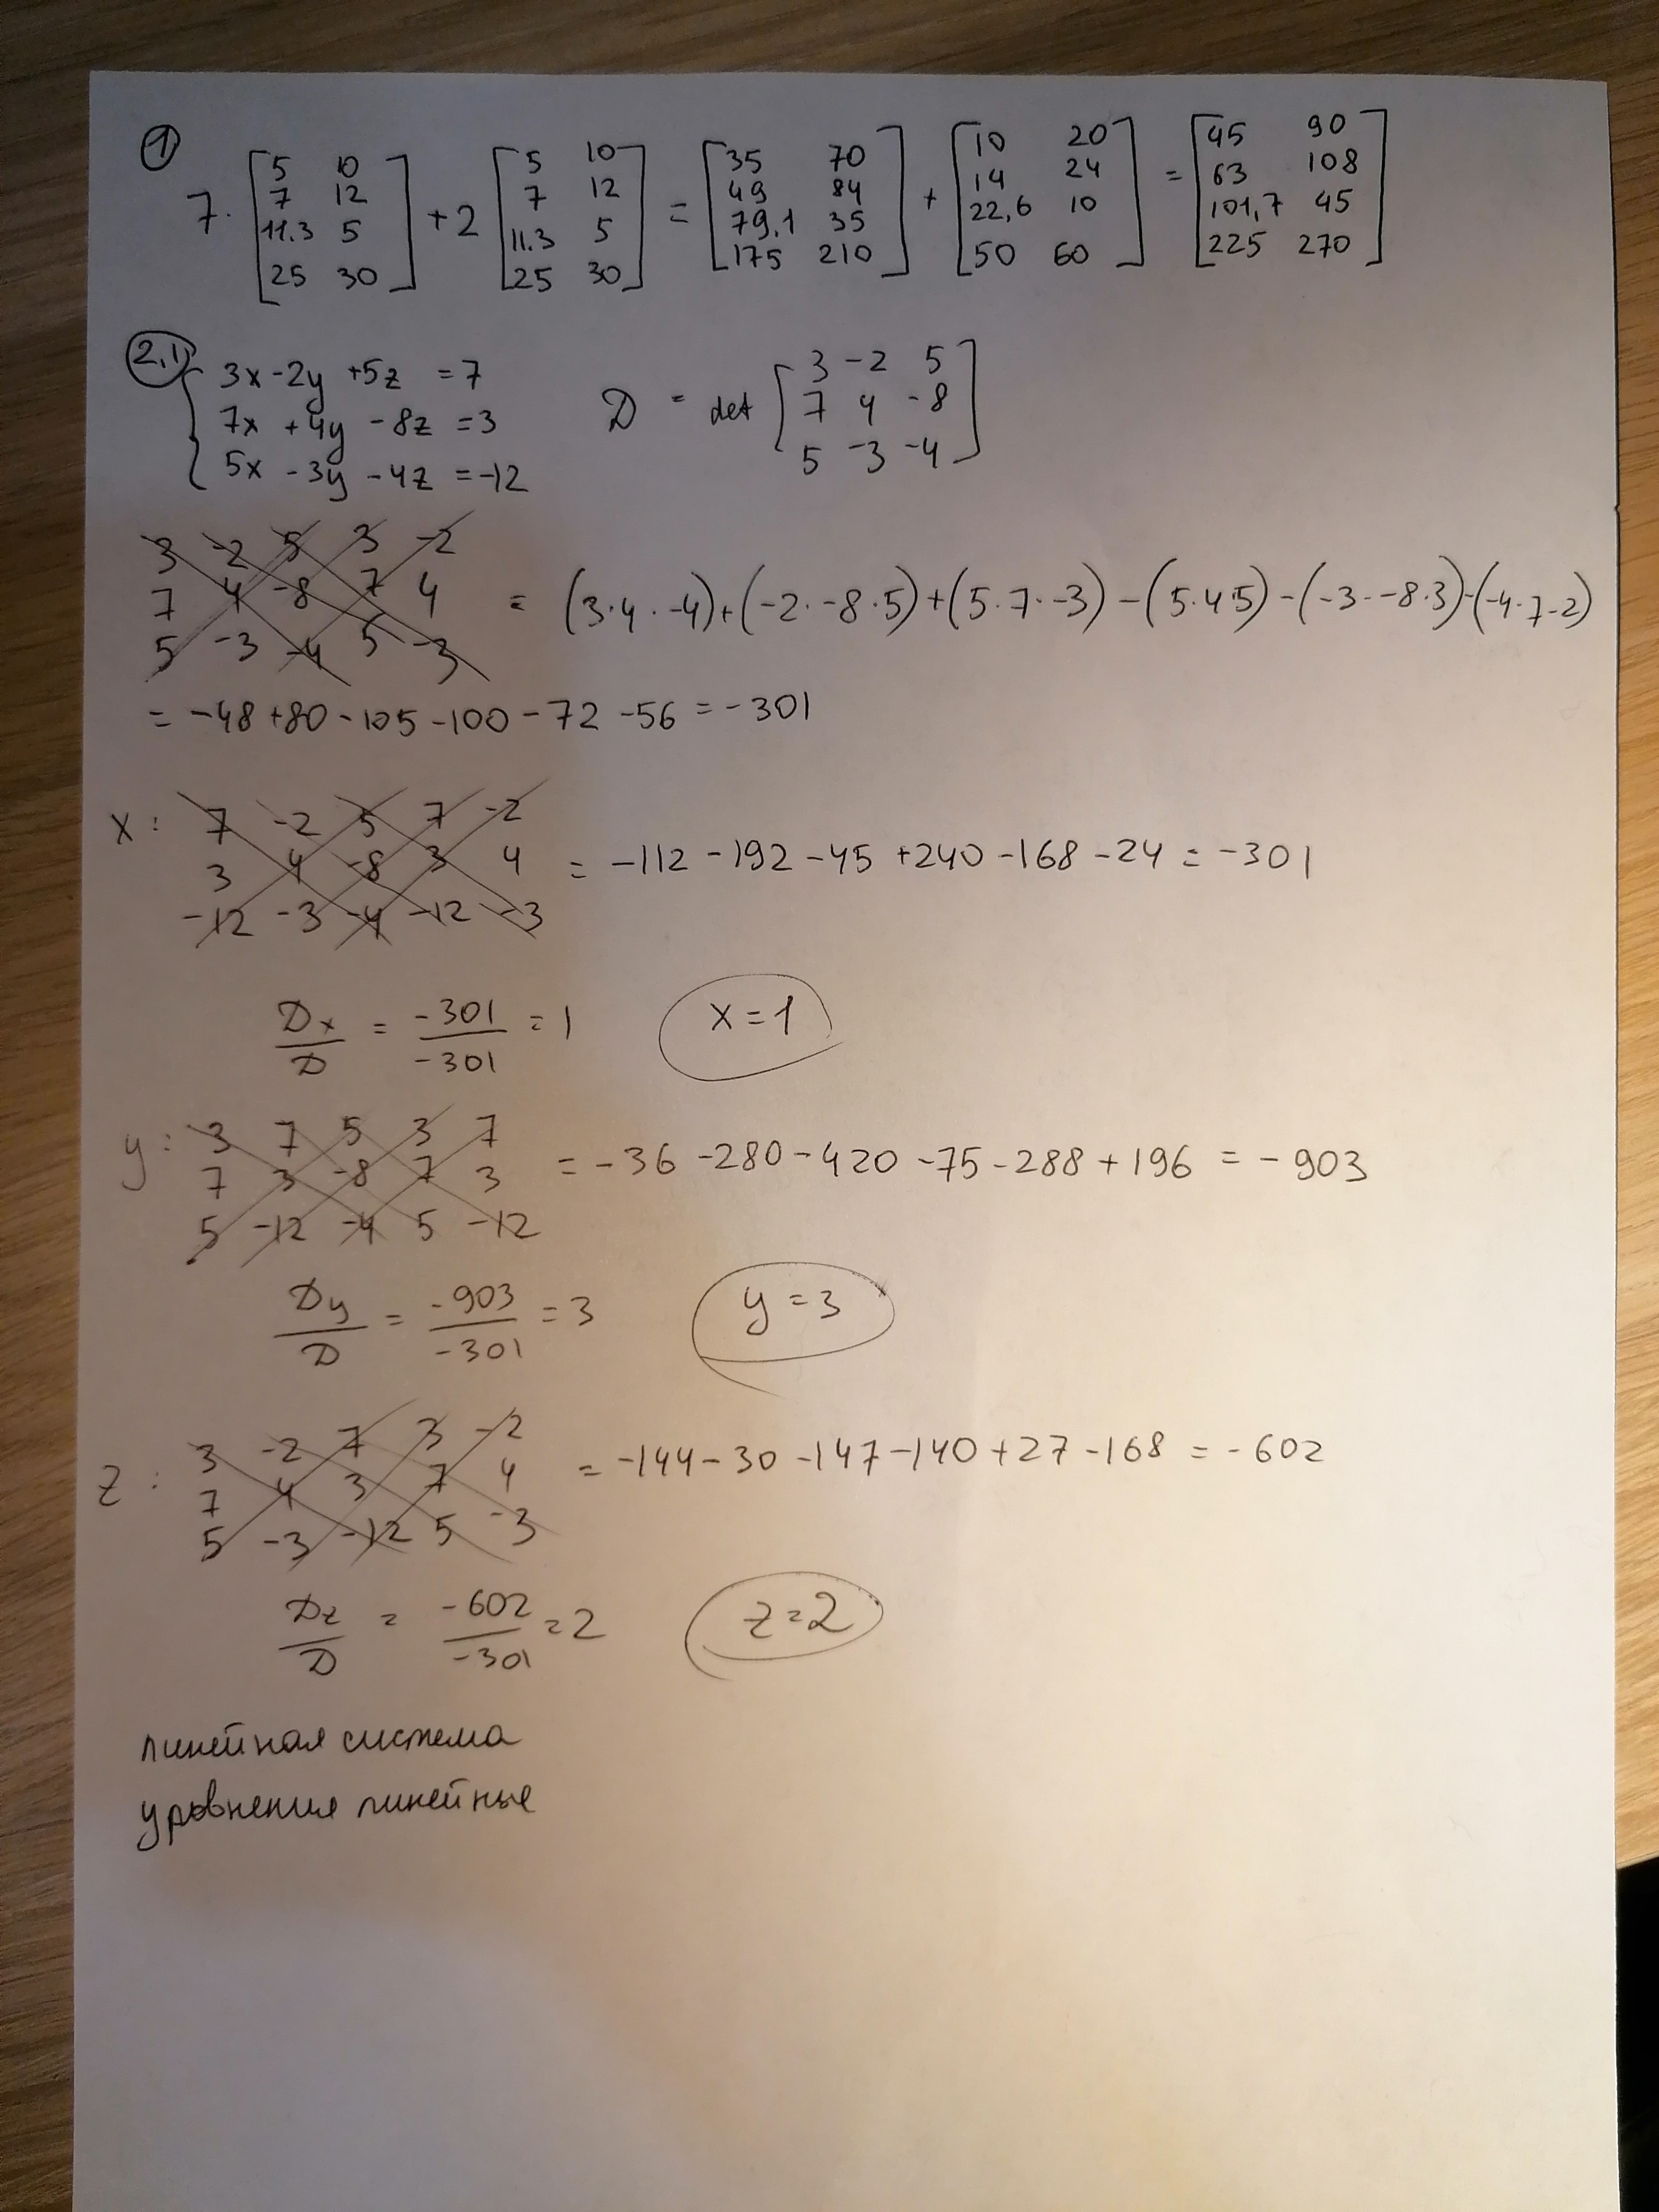 ①
7· [5 10; 7 12; 11.3 5; 25 30] + 2 [5 10; 7 12; 11.3 5; 25 30] = [35 70; 49 84; 79.1 35; 175 210] + [10 20; 14 24; 22,6 10; 50 60] = [45 90; 63 108; 101,7 45; 225 270]
2,1
3x - 2y + 5z = 7
7x + 4y - 8z = 3
5x - 3y - 4z = -12
D = det [3 -2 5; 7 4 -8; 5 -3 -4]
3 -2 5 3 -2
7 4 -8 7 4
5 -3 -4 5 -3
= (3·4·-4)+(-2·-8·5)+(5·7·-3)-(5·4·5)-(-3·-8·3)-(-4·7·-2)
= -48 +80 -105 -100 -72 -56 = -301
x: 7 -2 5 7 -2
3 4 -8 3 4
-12 -3 -4 -12 -3
= -112 -192 -45 +240 -168 -24 = -301
Dx/D = -301/-301 = 1
x = 1
y: 3 7 5 3 7
7 3 -8 7 3
5 -12 -4 5 -12
= -36 -280 -420 -75 -288 +196 = -903
Dy/D = -903/-301 = 3
y = 3
z: 3 -2 7 3 -2
7 4 3 7 4
5 -3 -12 5 -3
= -144 -30 -147 -140 +27 -168 = -602
Dz/D = -602/-301 = 2
z = 2
линейная система
уровнения линейные